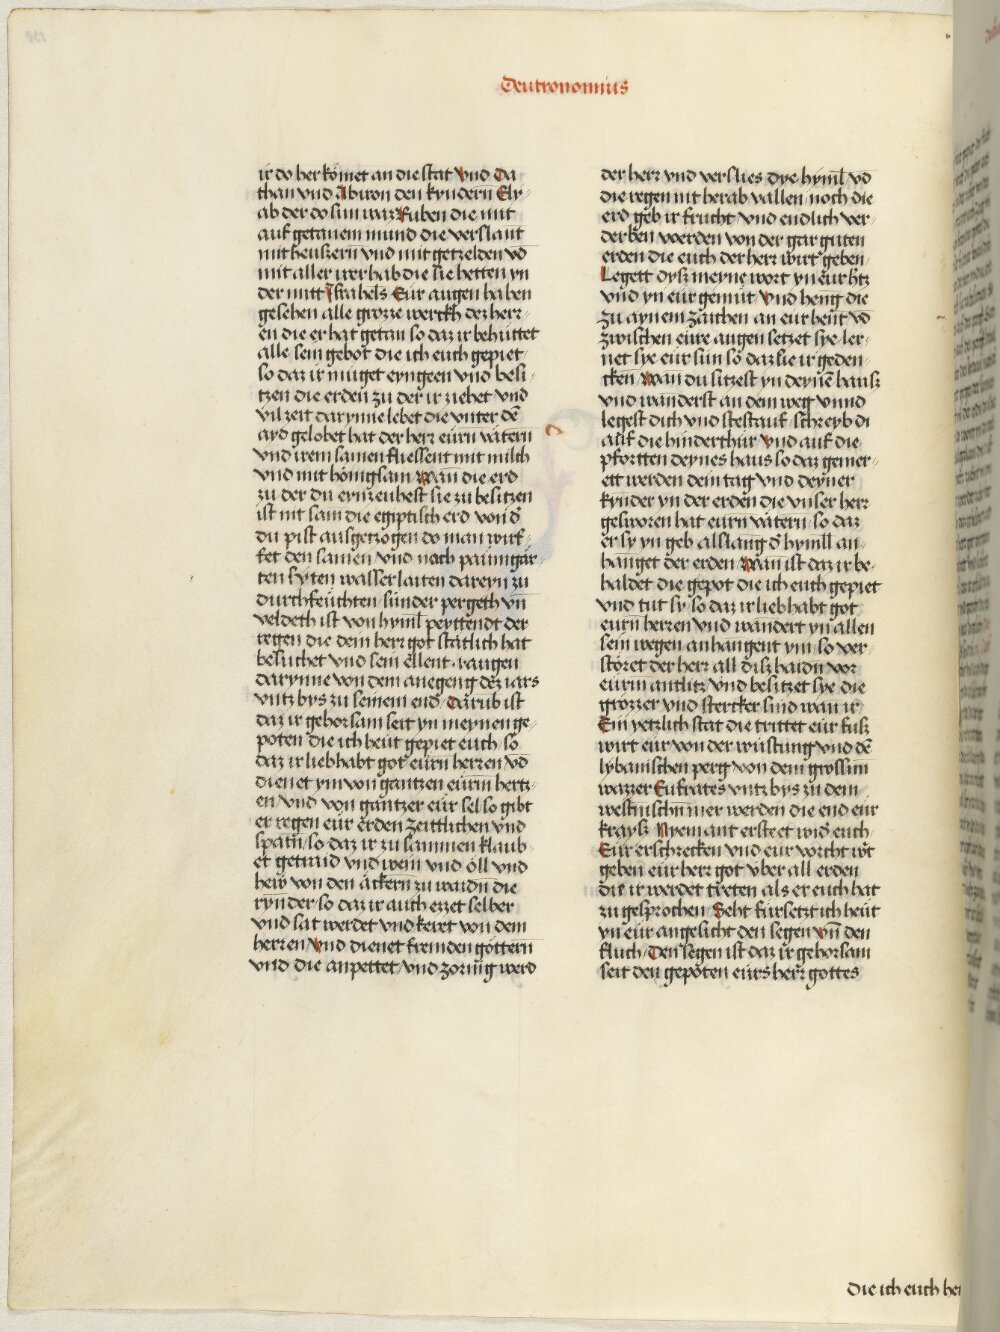 Deutronomius
ir do her kömet an die stat Vnd Da-
than vnd Abyron den kyndern Ely-
ab der do sun waz Ruben die mit
auf getanem mund die verslant
mit heuszern vnd mit getzelden vd
mit aller irer hab die sie hetten yn
der mitt Israhels Eür augen haben
gesehen alle grozze werckh dez herr-
en die er hat getan so daz ir behüttet
alle sein gebot die ich euch gepiet
so daz ir müget eyngeen vnd besi-
tzen die erden zu der ir ziehet vnd
vil zeit darynne lebet die vnter dē
ayd gelobet hat der herr eürn vätern
vnd irem samen fliessent mit milch
vnd mit hönigsam Wan die erd
zu der du eynzeuhest sie zu besitzen
ist nit sam die egiptisch erd von d̄
du pist ausgezogen do man wirf-
fet den samen vnd nach paumgar-
ten syten wasser laiten dareyn zu
durchfeüchten sünder pergeth vn̄
veldeth ist von hyml peyttendt der
regen die dem herr got stätlich hat
besuchet vnd sein ellent-raugen
darynne von dem anegeng dez iars
vntz bys zu seinem end Darub ist
daz ir gehorsam seit yn meynen ge-
poten die ich heüt gepiet euch so
daz ir liebhabt got eürn herren vd
dienet ym von gantzen eürm hertz-
en vnd von gantzer eür sel so gibt
er regen eür erden zeittlichen vnd
spatn so daz ir zu sammen klaub-
et getraid vnd wein vnd öll vnd
hew von den äckern zu waidn die
rynder so daz ir auch ezzet selber
vnd sat werdet vnd keret von dem
herren Vnd dienet fremden göttern
vnd die anpettet vnd zornig werd
der herr vnd verslies dye hyml vd
die regen nit herab vallen noch die
erd geb ir frucht vnd endlich ver-
derben werden von der gar guten
erden die euch der herr wirt geben
Legett dysz meyne wort yn eür htz
vnd yn eür gemüt Vnd heng die
zu aynem zaichen an eür hent vd
zwischen eüre augen setzet sye ler-
net sye eür sün so daz sie ir geden-
cken Wan du sitzest yn deynē hausz
vnd wanderst an dem weg vnnd
legest dich vnd stest auf schreyb di
auf die hinderthür Vnd auf die
pfortten deynes haus so daz gemer-
ett werden dein tag vnd deyner
kynder yn der erden die vnser herr
gesworen hat eürn vätern so daz
er sy yn geb alslang d̄ hymll an-
hanget der erden Wan ist daz ir be-
haldet die gepot die ich euch gepiet
vnd tut sy so daz ir liebhabt got
eürn herren vnd wandert yn allen
sein wegen anhangent ym so ver-
störet der herr all disz haidn vor
eürm antlitz vnd besitzet sye die
grozzer vnd stercker sind wan ir
Ein yetzlich stat die trittet eür fusz
wirt eür von der wüstung vnd dē
lybanischen perg von dem grossm
wazzer Eufrates vntz bys zu dem
westnischn mer werden die end eür
kraysz Nyemant ersteet wid̄ euch
Eür erschrecken vnd eür vorcht wt
geben eür herr got vber all erden
die ir werdet treten als er euch hat
zu gesprochen Seht fürsetzt ich heüt
yn eür angesicht den segen vn̄ den
fluch Den segen ist daz ir gehorsam
seit den gepoten eürs herr gottes
die ich euch